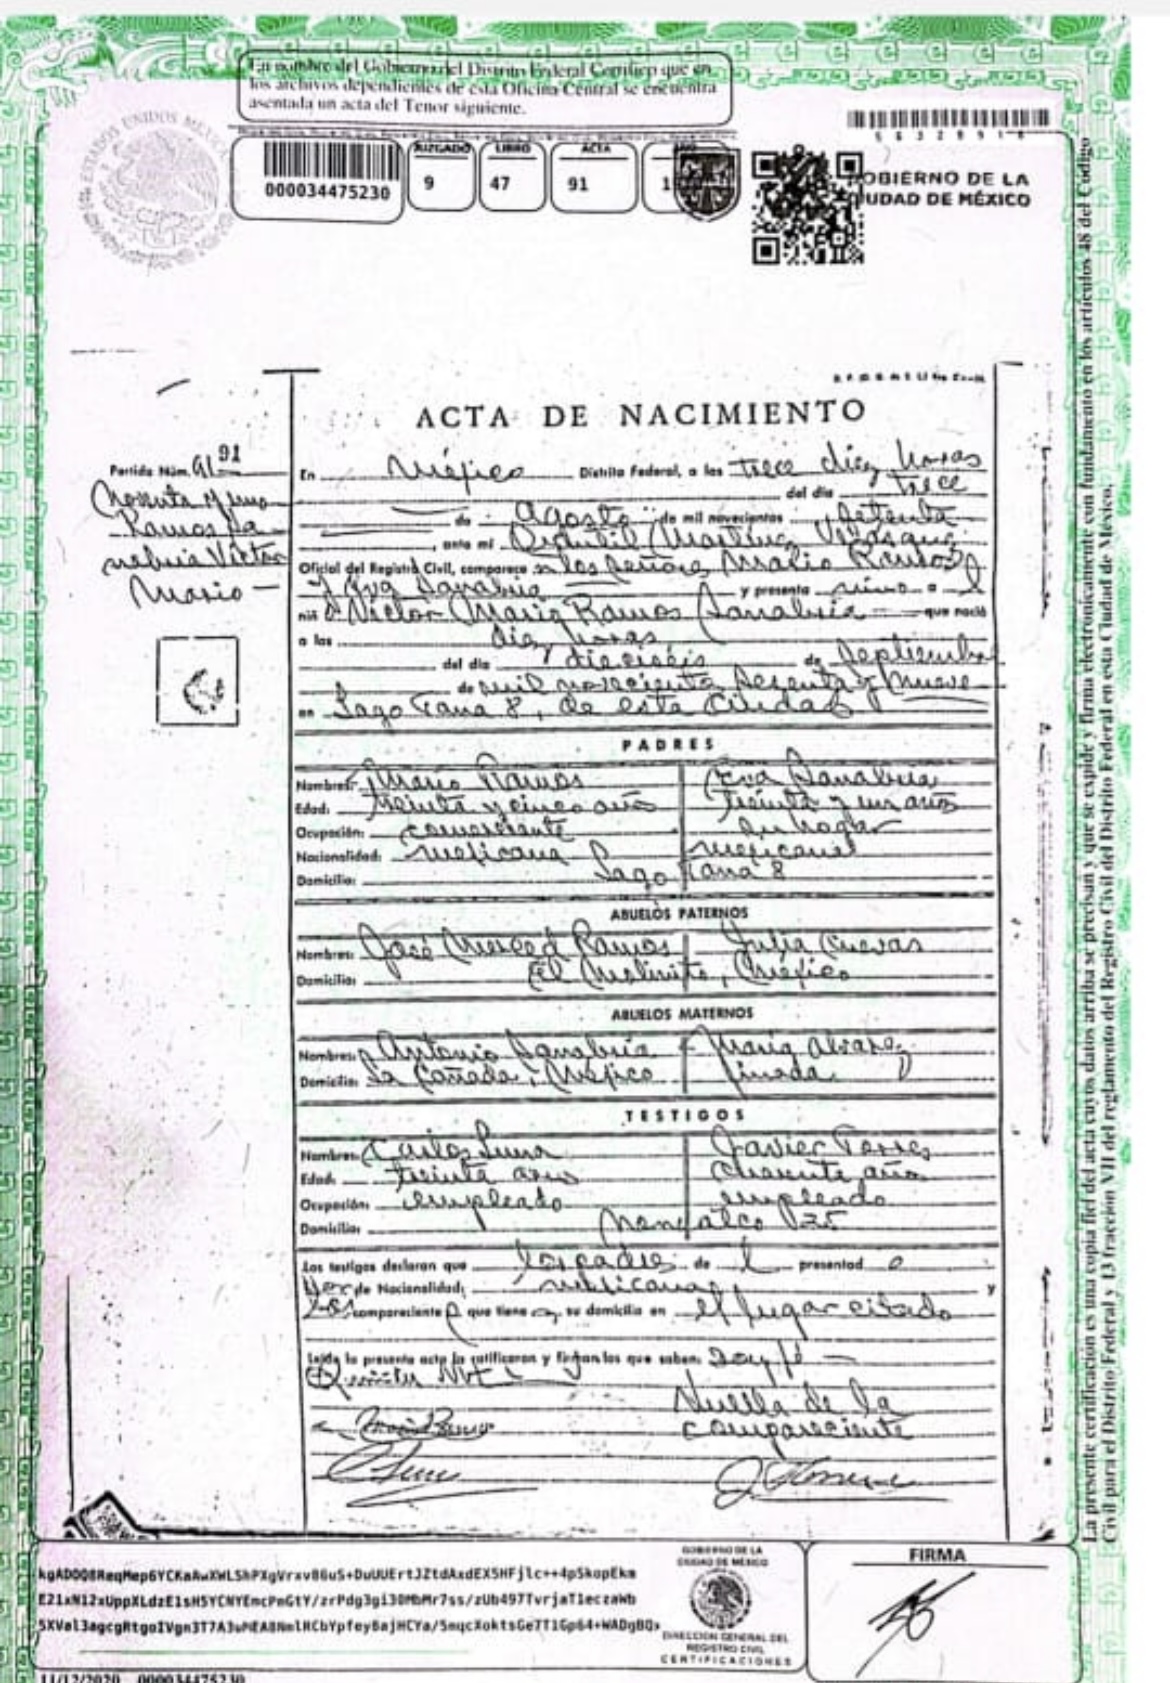 En nombre del Gobierno del Distrito Federal Certifico que en
los archivos dependientes de esta Oficina Central se encuentra
asentada un acta del Tenor siguiente.
ESTADOS UNIDOS MEX
5 6 3 2 8 9 1 8
JUZGADO LIBRO ACTA
000034475230 9 47 91 1
GOBIERNO DE LA
CIUDAD DE MÉXICO
ACTA DE NACIMIENTO
Partida Núm. 91 91
Noventa y uno
Ramos Sa-
nabria Victor
Mario —
En México Distrito Federal, a las trece diez horas
del día trece
de Agosto de mil novecientos setenta
ante mí Martinez
Oficial del Registro Civil, comparece los señores Mario Ramos
y Eva Sanabria y presenta vivo a l
niñ o Victor Mario Ramos Sanabria que nació
a las diez horas
del día dieciséis de Septiembre
de mil novecientos sesenta y nueve
en Lago Tana 8, de esta Ciudad
PADRES
Nombres: Mario Ramos Eva Sanabria
Edad: treinta y cinco años treinta y un años
Ocupación: comerciante su hogar
Nacionalidad: mexicana mexicana
Domicilio: Lago Tana 8
ABUELOS PATERNOS
Nombres: José Merced Ramos Julia Cuevas
Domicilio: El Molinito, México
ABUELOS MATERNOS
Nombres: Antonio Sanabria María Alvarez
Domicilio: La Cañada, México finada
TESTIGOS
Nombres: Carlos Luna Javier Torres
Edad: treinta años cuarenta años
Ocupación: empleado empleado
Domicilio: Nonoalco 125
Los testigos declaran que los padres de l presentad o
de Nacionalidad: mexicana y
compareciente que tiene su domicilio en el lugar citado
Leída la presente acta la ratificaron y firman los que saben: Doy fé —
Huella de la
compareciente
La presente certificación es una copia fiel del acta cuyos datos arriba se precisan y que se expide y firma electrónicamente con fundamento en los artículos 48 del Código
Civil para el Distrito Federal y 13 fracción VII del reglamento del Registro Civil del Distrito Federal en esta Ciudad de México.
GOBIERNO DE LA
CIUDAD DE MÉXICO
DIRECCION GENERAL DEL
REGISTRO CIVIL
CERTIFICACIONES
FIRMA
11/12/2020 000034475230